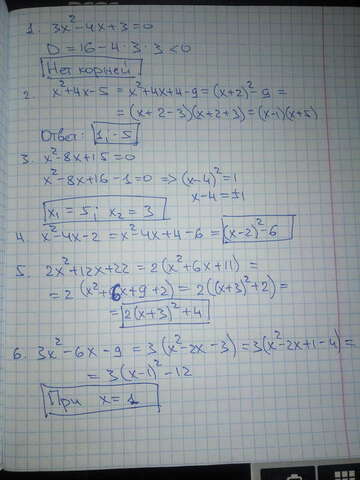 1. 3x²-4x+3=0
D=16-4·3·3<0
Нет корней
2. x²+4x-5 = x²+4x+4-9=(x+2)²-9=
=(x+2-3)(x+2+3)=(x-1)(x+5)
Ответ: 1; -5
3. x²-8x+15=0
x²-8x+16-1=0 => (x-4)²=1
x-4=±1
x₁=5; x₂=3
4. x²-4x-2=x²-4x+4-6=(x-2)²-6
5. 2x²+12x+22=2(x²+6x+11)=
=2(x²+6x+9+2)=2((x+3)²+2)=
=2(x+3)²+4
6. 3x²-6x-9=3(x²-2x-3)=3(x²-2x+1-4)=
=3(x-1)²-12
При x=1